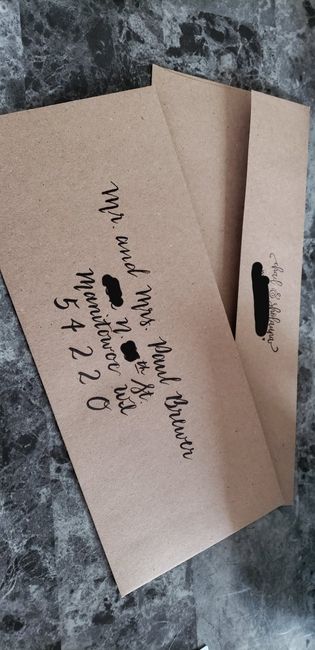 Mr. and Mrs. Paul Brewer
N. th St.
Manitowoc WI
54220
&